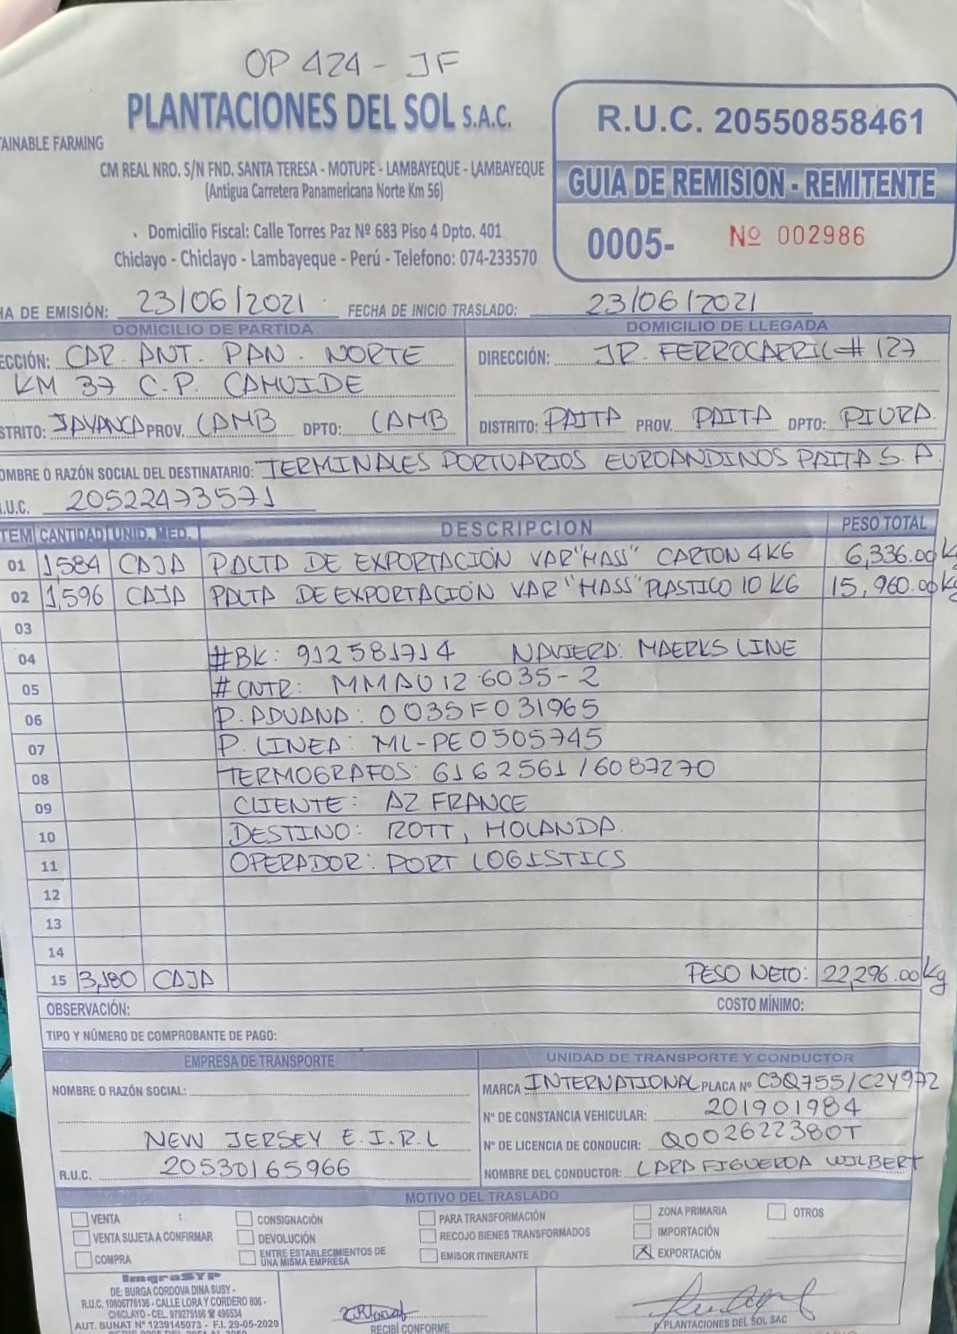 OP 424 - JF
PLANTACIONES DEL SOL S.A.C.
R.U.C. 20550858461
AINABLE FARMING
CM REAL NRO. S/N FND. SANTA TERESA - MOTUPE - LAMBAYEQUE - LAMBAYEQUE
(Antigua Carretera Panamericana Norte Km 56)
GUIA DE REMISION - REMITENTE
Domicilio Fiscal: Calle Torres Paz Nº 683 Piso 4 Dpto. 401
Chiclayo - Chiclayo - Lambayeque - Perú - Telefono: 074-233570
0005- Nº 002986
HA DE EMISIÓN: 23/06/2021 FECHA DE INICIO TRASLADO: 23/06/2021
DOMICILIO DE PARTIDA DOMICILIO DE LLEGADA
ECCIÓN: CAR. ANT. PAN. NORTE DIRECCIÓN: JR. FERROCARRIL # 127
KM 37 C.P. CAHUIDE
STRITO: JAYANCA PROV. LAMB DPTO: LAMB DISTRITO: PAITA PROV. PAITA DPTO: PIURA.
OMBRE O RAZÓN SOCIAL DEL DESTINATARIO: TERMINALES PORTUARIOS EUROANDINOS PAITA S.A.
.U.C. 20522473571
TEM CANTIDAD UNID. MED. DESCRIPCION PESO TOTAL
01 1,584 CAJA PALTA DE EXPORTACIÓN VAR "HASS" CARTON 4KG 6,336.00 K
02 1,596 CAJA PALTA DE EXPORTACIÓN VAR "HASS" PLASTICO 10 KG 15,960.00 KG
03
04 #BK: 912581714 NAVIERA: MAERKS LINE
05 # CNTR: MMAU 12 6035-2
06 P. ADUANA: 0035F031965
07 P. LINEA: ML-PE0505745
08 TERMOGRAFOS: 6162561 / 6087270
09 CLIENTE: AZ FRANCE
10 DESTINO: ROTT, HOLANDA.
11 OPERADOR: PORT LOGISTICS
12
13
14
15 3,180 CAJA PESO NETO: 22,296.00 Kg
OBSERVACIÓN: COSTO MÍNIMO:
TIPO Y NÚMERO DE COMPROBANTE DE PAGO:
EMPRESA DE TRANSPORTE UNIDAD DE TRANSPORTE Y CONDUCTOR
NOMBRE O RAZÓN SOCIAL: MARCA INTERNATIONAL PLACA Nº C3Q755/C2Y972
Nº DE CONSTANCIA VEHICULAR: 201901984
NEW JERSEY E.I.R.L Nº DE LICENCIA DE CONDUCIR: Q002622380T
R.U.C. 20530165966 NOMBRE DEL CONDUCTOR: LARA FIGUEROA WILBERT
MOTIVO DEL TRASLADO
VENTA CONSIGNACIÓN PARA TRANSFORMACIÓN ZONA PRIMARIA OTROS
VENTA SUJETA A CONFIRMAR DEVOLUCIÓN RECOJO BIENES TRANSFORMADOS IMPORTACIÓN
COMPRA ENTRE ESTABLECIMIENTOS DE UNA MISMA EMPRESA EMISOR ITINERANTE X EXPORTACIÓN
ImgraSYP
DE: BURGA CORDOVA DINA SUSY -
R.U.C. 10806778136 - CALLE LORA Y CORDERO 806 -
CHICLAYO - CEL. 979275166 ☎ 496534
AUT. SUNAT Nº 1239145073 - F.I. 29-05-2020
RECIBÍ CONFORME P. PLANTACIONES DEL SOL SAC